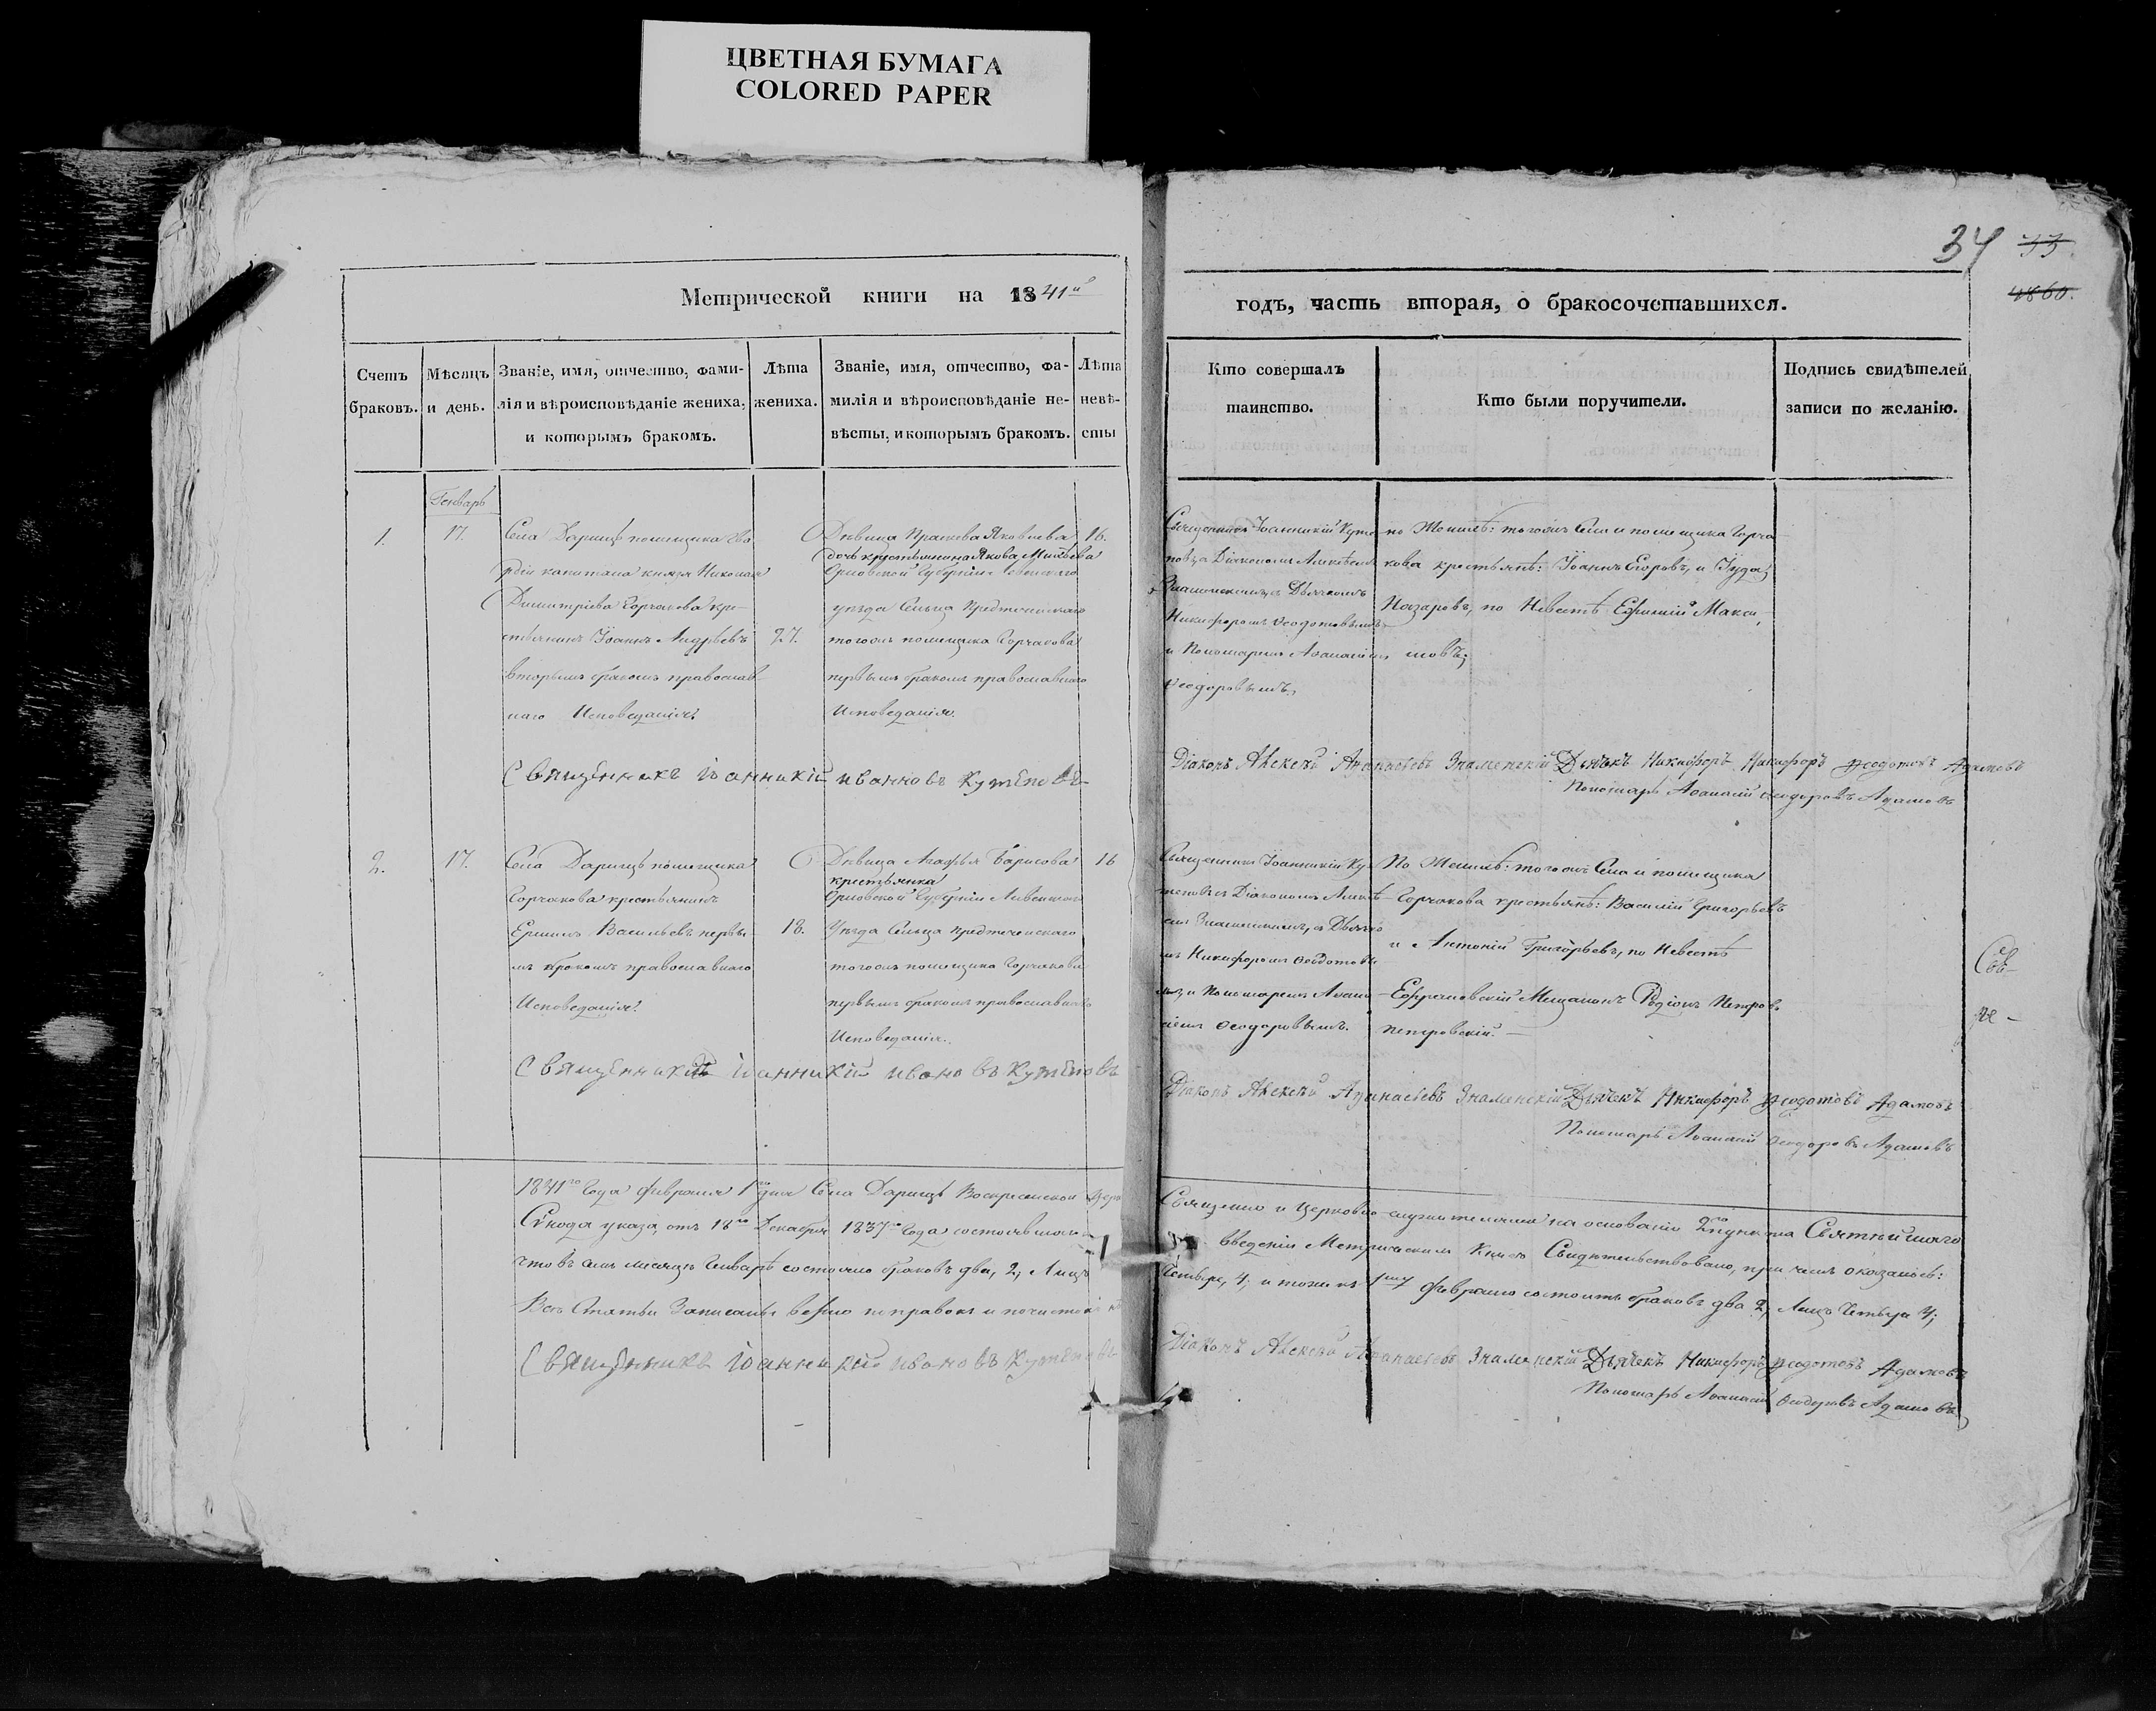 ЦВЕТНАЯ БУМАГА
COLORED PAPER
34 33
4860.
Метрической книги на 1841й
годъ, часть вторая, о бракосочетавшихся.
Счетъ браковъ.
Мѣсяцъ и день.
Званіе, имя, отчество, фами-
лія и вѣроисповѣданіе жениха,
и которымъ бракомъ.
Лѣта
жениха.
Званіе, имя, отчество, фа-
милія и вѣроисповѣданіе не-
вѣсты, и которымъ бракомъ.
Лѣта
невѣ-
сты
Кто совершалъ
таинство.
Кто были поручители.
Подпись свидѣтелей
записи по желанію.
Генварь
1.
17.
Села Дарищъ помещика гва
рдіи капитана князя Николая
Димитріева Горчакова кре-
стьянинъ Іоаннъ Андрѣевъ
вторымъ бракомъ православ
наго Исповеданія.
27.
Дѣвица Праскева Яковлева
дочь крестьянина Якова
Орловской Губерніи
уезда Сельца Предтеченскаго
тогожъ помещика Горчакова
первымъ бракомъ православнаго
Исповеданія.
16.
Священникъ Іоанникій Куте
повъ, съ Діакономъ Алексѣемъ
Знаменскимъ, съ Дьячкомъ
Никифоромъ Ѳеодотовымъ
и Пономаремъ Аѳанасіемъ
Ѳеодоровымъ.
по Женихѣ: тогожъ Села и помещика Горча
кова крестьянѣ: Іоаннъ Егоровъ, и Іуда
Назаровъ, по Невестѣ Ефимій Макси,
мовъ;
Священникъ Іоанникій Ивановъ Кутеповъ
Діаконъ Алексѣй Аѳанасьевъ Знаменскій Дьячекъ Никифоръ Никифоръ Ѳеодотовъ Адамовъ
Пономарь Аѳанасій Ѳеодоровъ Адамовъ
2.
17.
Села Дарищъ помещика
Горчакова крестьянинъ
Ермилъ Васильевъ первы-
мъ бракомъ православнаго
Исповеданія.
18.
Дѣвица Агафья Барисова
крестьянка
Орловской Губерніи Ливенскаго
Уезда Сельца Предтеченскаго
тогожъ помещика Горчакова
первымъ бракомъ православнаго
Исповеданія.
16
Священникъ Іоанникій Ку
теповъ съ Діакономъ Алексѣ
емъ Знаменскимъ, съ Дьячко
мъ Никифоромъ Ѳеодотовы
мъ, и Пономаремъ Аѳана
сіемъ Ѳеодоровымъ.
По Женихѣ: тогожъ Села и помещика
Горчакова крестьянѣ: Василій Григорьевъ
и Антоній Григорьевъ, по Невестѣ
Ефремовскій Мещанинъ Родіонъ Петровъ
Петровскій.
Священникъ Іоанникій Ивановъ Кутеповъ
Діаконъ Алексѣй Аѳанасьевъ Знаменскій Дьячекъ Никифоръ Ѳеодотовъ Адамовъ
Пономарь Аѳанасій Ѳеодоровъ Адамовъ
1841го Года февраля 1го дня Села Дарищъ Воскресенской Церк Священно и Церковно-служителями на основаніи 2го пункта Святейшаго
Сѵнода указа, отъ 18го Декабря 1837го Года состоявшаго о введеніи Метрическихъ Книгъ Свидѣтельствовано, при чемъ оказалось:
что въ семъ месяцѣ Генварѣ состояло браковъ два, 2, Лицъ четыре, 4; и тожъ къ 1му февралю состоитъ браковъ два 2, Лицъ четыре 4;
Все Статьи Записаны верно поправокъ и почистокъ
Священникъ Іоанникій Ивановъ Кутеповъ
Діаконъ Алексѣй Аѳанасьевъ Знаменскій Дьячекъ Никифоръ Ѳеодотовъ Адамовъ
Пономарь Аѳанасій Ѳеодоровъ Адамовъ